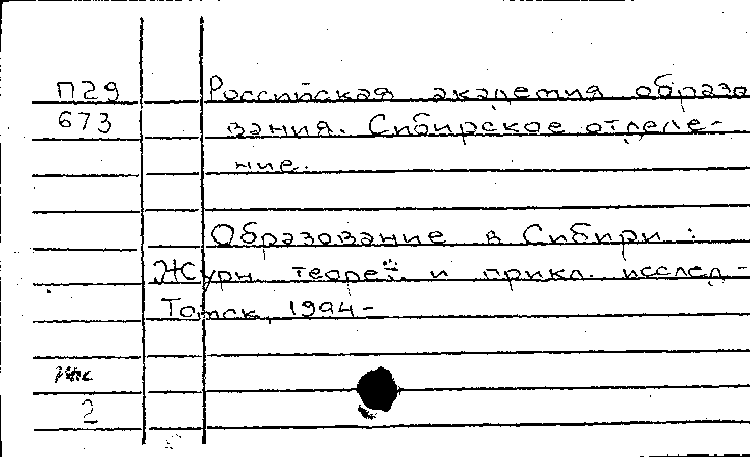 П29
673
Российская академия образо
вания. Сибирское отделе-
ние.
Образование в Сибири :
Журн. теорет. и прикл. исслед -
Томск, 1994-
2